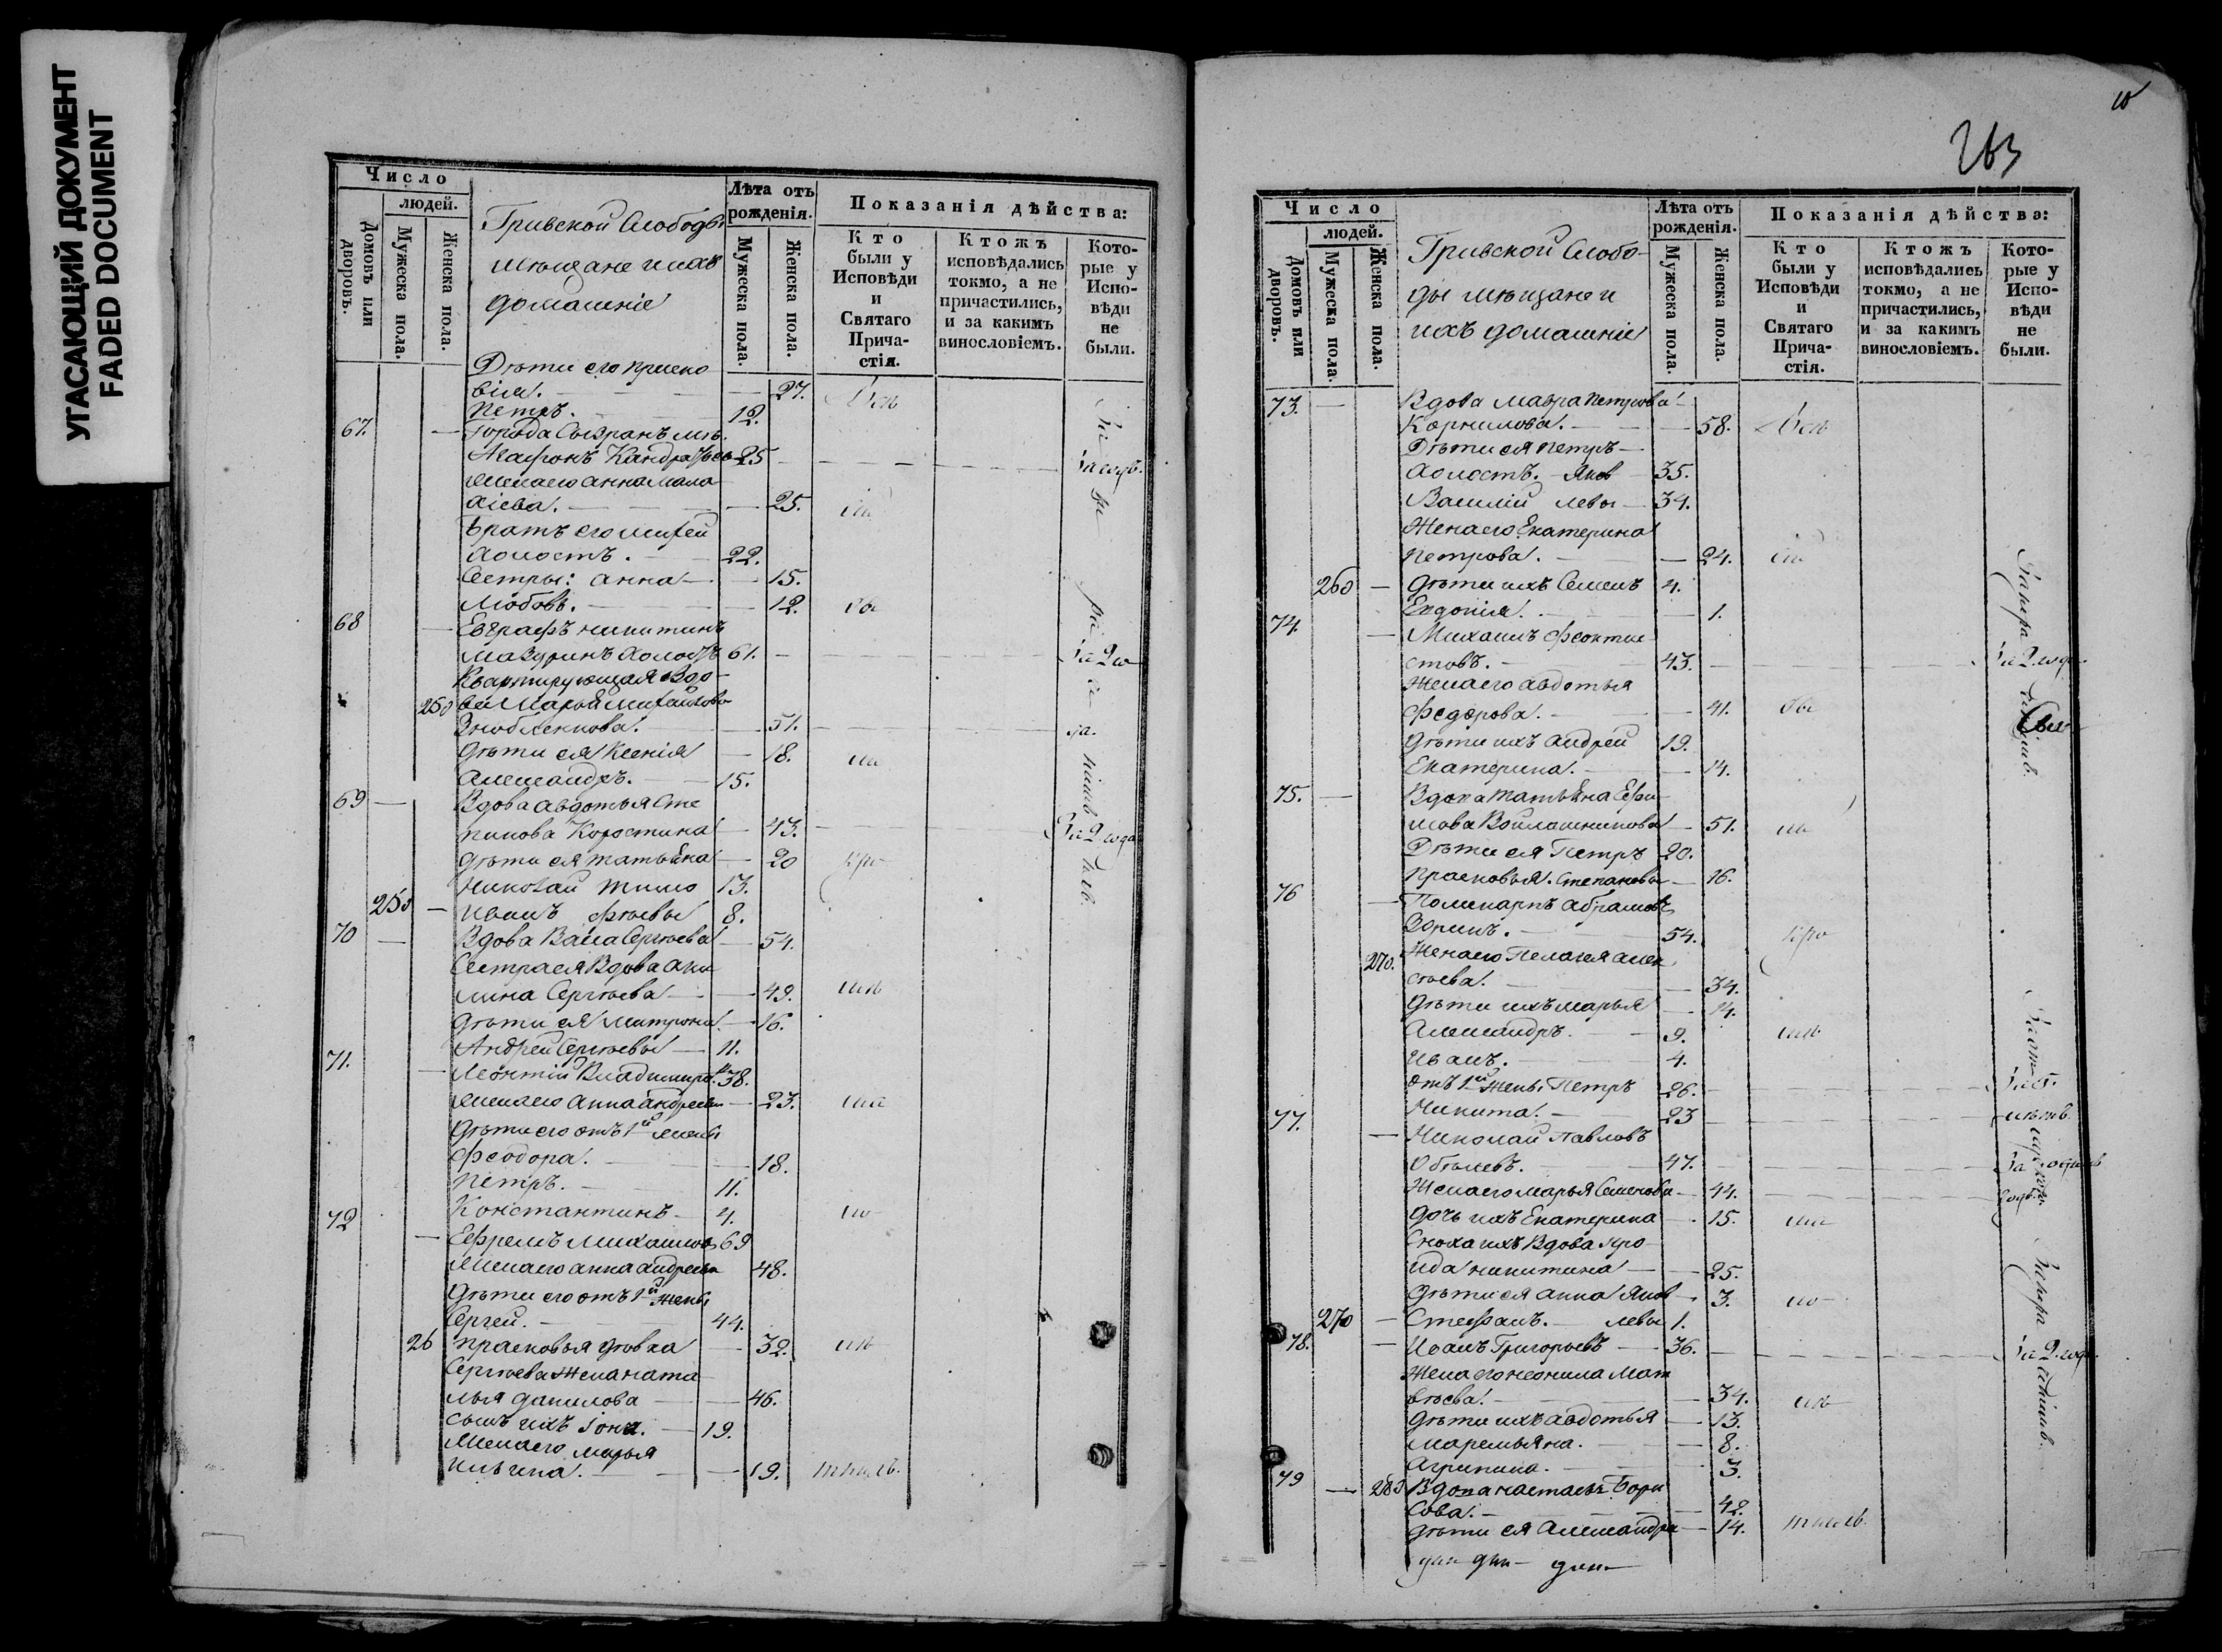 УГАСАЮЩИЙ ДОКУМЕНТ
FADED DOCUMENT
Число
людей.
Домовъ или дворовъ.
Мужеска пола.
Женска пола.
Гривской Слободы
мѣщане и ихъ
домашніе
Лѣта отъ рожденія.
Мужеска пола.
Женска пола.
Показанія дѣйства:
Кто были у Исповѣди и Святаго Причастія.
Ктожъ исповѣдались токмо, а не причастились, и за какимъ винословіемъ.
Которые у Исповѣди не были.
Дѣти его Праско
вія. 27.
Петръ. 12.
67. Города Сызранъ мѣ.
25
Жена его Анна Мала
хіева. 25.
Братъ его
Холостъ. 22.
Сестры: Анна 15.
Любовь. 12.
68 Евграфъ Никитинъ
Мазуринъ Холостъ 61. За 2 го
Квартирующая Вдо
ва Марья Михайлова
51.
Дѣти ея Ксенія 18.
Александръ. 15.
69 Вдова Авдотья Сте
панова Коростина 43. За 2 года
Дѣти ея Татьяна 20
Николай Тимо 13.
Иванъ фѣевы 8.
70 Вдова Васса Сергѣева 54.
Сестра ея Вдова Аку
лина Сергѣева 49.
Дѣти ея Матрона 16.
Андрей Сергѣевы 11.
71. Леонтій Владимиро 38.
Жена его Анна Андреева 23.
Дѣти его отъ 1й жены
Феодора. 18.
Петръ. 11.
Константинъ 4.
72 Ефремъ Михайловъ 69
Жена его Анна Андреева 48.
Дѣти его отъ 1й жены
Сергей. 44.
26 Прасковья дѣвка 32.
Сергѣева Жена Ната
лья Данилова 46.
Сынъ ихъ Іона. 19.
Жена его Марья
Ильина. 19.
263
Число
людей.
Домовъ или дворовъ.
Мужеска пола.
Женска пола.
Гривской Слобо
ды мѣщане и
ихъ домашніе
Лѣта отъ рожденія.
Мужеска пола.
Женска пола.
Показанія дѣйства:
Кто были у Исповѣди и Святаго Причастія.
Ктожъ исповѣдались токмо, а не причастились, и за какимъ винословіемъ.
Которые у Исповѣди не были.
73. Вдова Мавра Петрова
Корнилова. 58.
Дѣти ея Петръ
Холостъ. Яков 35.
Василій левы 34.
Жена его Екатерина
Петрова. 24.
260 Дѣти ихъ Семенъ 4.
Евдокія. 1.
74. Михаилъ Феокти
стовъ. 43. За 2 года
Жена его Авдотья
Федорова. 41.
Дѣти ихъ Андрей 19.
Екатерина. 14.
75. Вдова Татьяна Ефи
мова Войлошникова 51.
Дѣти ея Петръ 20.
Прасковья. Степановы 16.
76 Поликарпъ Абрамовъ
Зоринъ. 54.
270. Жена его Пелагея Алек
сѣева. 34.
Дѣти ихъ Марья 14.
Александръ. 9.
Иванъ. 4.
отъ 1й жены Петръ 26.
Никита. 23
77. Николай Павловъ
47.
Жена его Марья Семенова 44.
Дочь ихъ Екатерина 15.
Сноха ихъ Вдова Иро
ида Никитина 25.
Дѣти ея Анна Яков 3.
270 Стефанъ. левы 1.
78. Иванъ Григорьевъ 36. За 2 года
Жена его Неонила Мат
вѣева. 34.
Дѣти ихъ Авдотья 13.
Маремьяна. 8.
Агрипина. 3.
79 280 Вдова Настасья Бори
сова. 42.
Дѣти ея Александра 14.